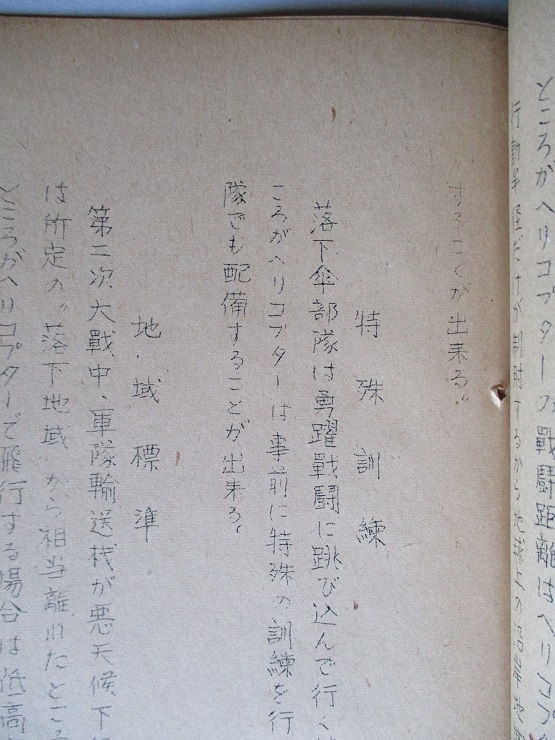 ところがヘリコプターの戰鬪距離はヘリコプタ
行動半径だけが制限するから地球上の
することが出来る。
特殊訓練
落下傘部隊は勇躍戰鬪に跳び込んで行く
ころがヘリコプターは事前に特殊の訓練を行
隊でも配備することが出来る。
地域標準
第二次大戰中、軍隊輸送機が悪天候下
は所定の〃落下地域〃から相当離れたところ
ところがヘリコプターで飛行する場合は低高